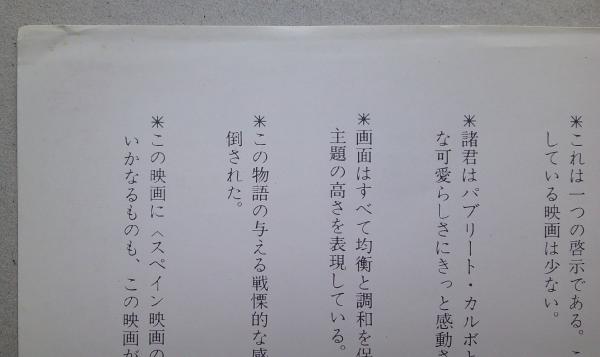 ＊これは一つの啓示である。こ
している映画は少ない。
＊諸君はパブリート・カルボと
な可愛らしさにきっと感動さ
＊画面はすべて均衡と調和を保
主題の高さを表現している。
＊この物語の与える戦慄的な感
倒された。
＊この映画に〈スペイン映画の
いかなるものも、この映画が